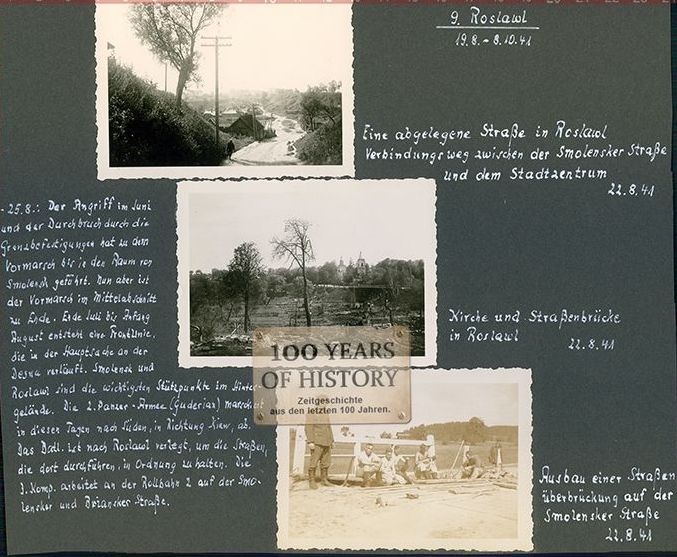 9. Roslawl
19.8.-8.10.41
Eine abgelegene Straße in Roslawl
Verbindungsweg zwischen der Smolensker Straße
und dem Stadtzentrum
22.8.41
-25.8.: Der Angriff im Juni
und der Durchbruch durch die
Grenzbefestigungen hat zu dem
Vormarsch bis in den Raum von
Smolensk geführt. Nun aber ist
der Vormarsch im Mittelabschnitt
zu Ende. Ende Juli bis Anfang
August entsteht eine Frontlinie,
die in der Hauptsache an der
Desna verläuft. Smolensk und
Roslawl sind die wichtigsten Stützpunkte im Hinter-
gelände. Die 2. Panzer-Armee (Guderian) marschiert
in diesen Tagen nach Süden, in Richtung Kiew, ab.
Das Batl. ist nach Roslawl verlegt, um die Straßen,
die dort durchführen, in Ordnung zu halten. Die
Komp. arbeitet an der Rollbahn 2 auf der Smo-
lensker und Brjansker Straße.
Kirche und Straßenbrücke
in Roslawl
22.8.41
100 YEARS
OF HISTORY
Zeitgeschichte
aus den letzten 100 Jahren.
Ausbau einer Straßen
überbrückung auf der
Smolensker Straße
22.8.41